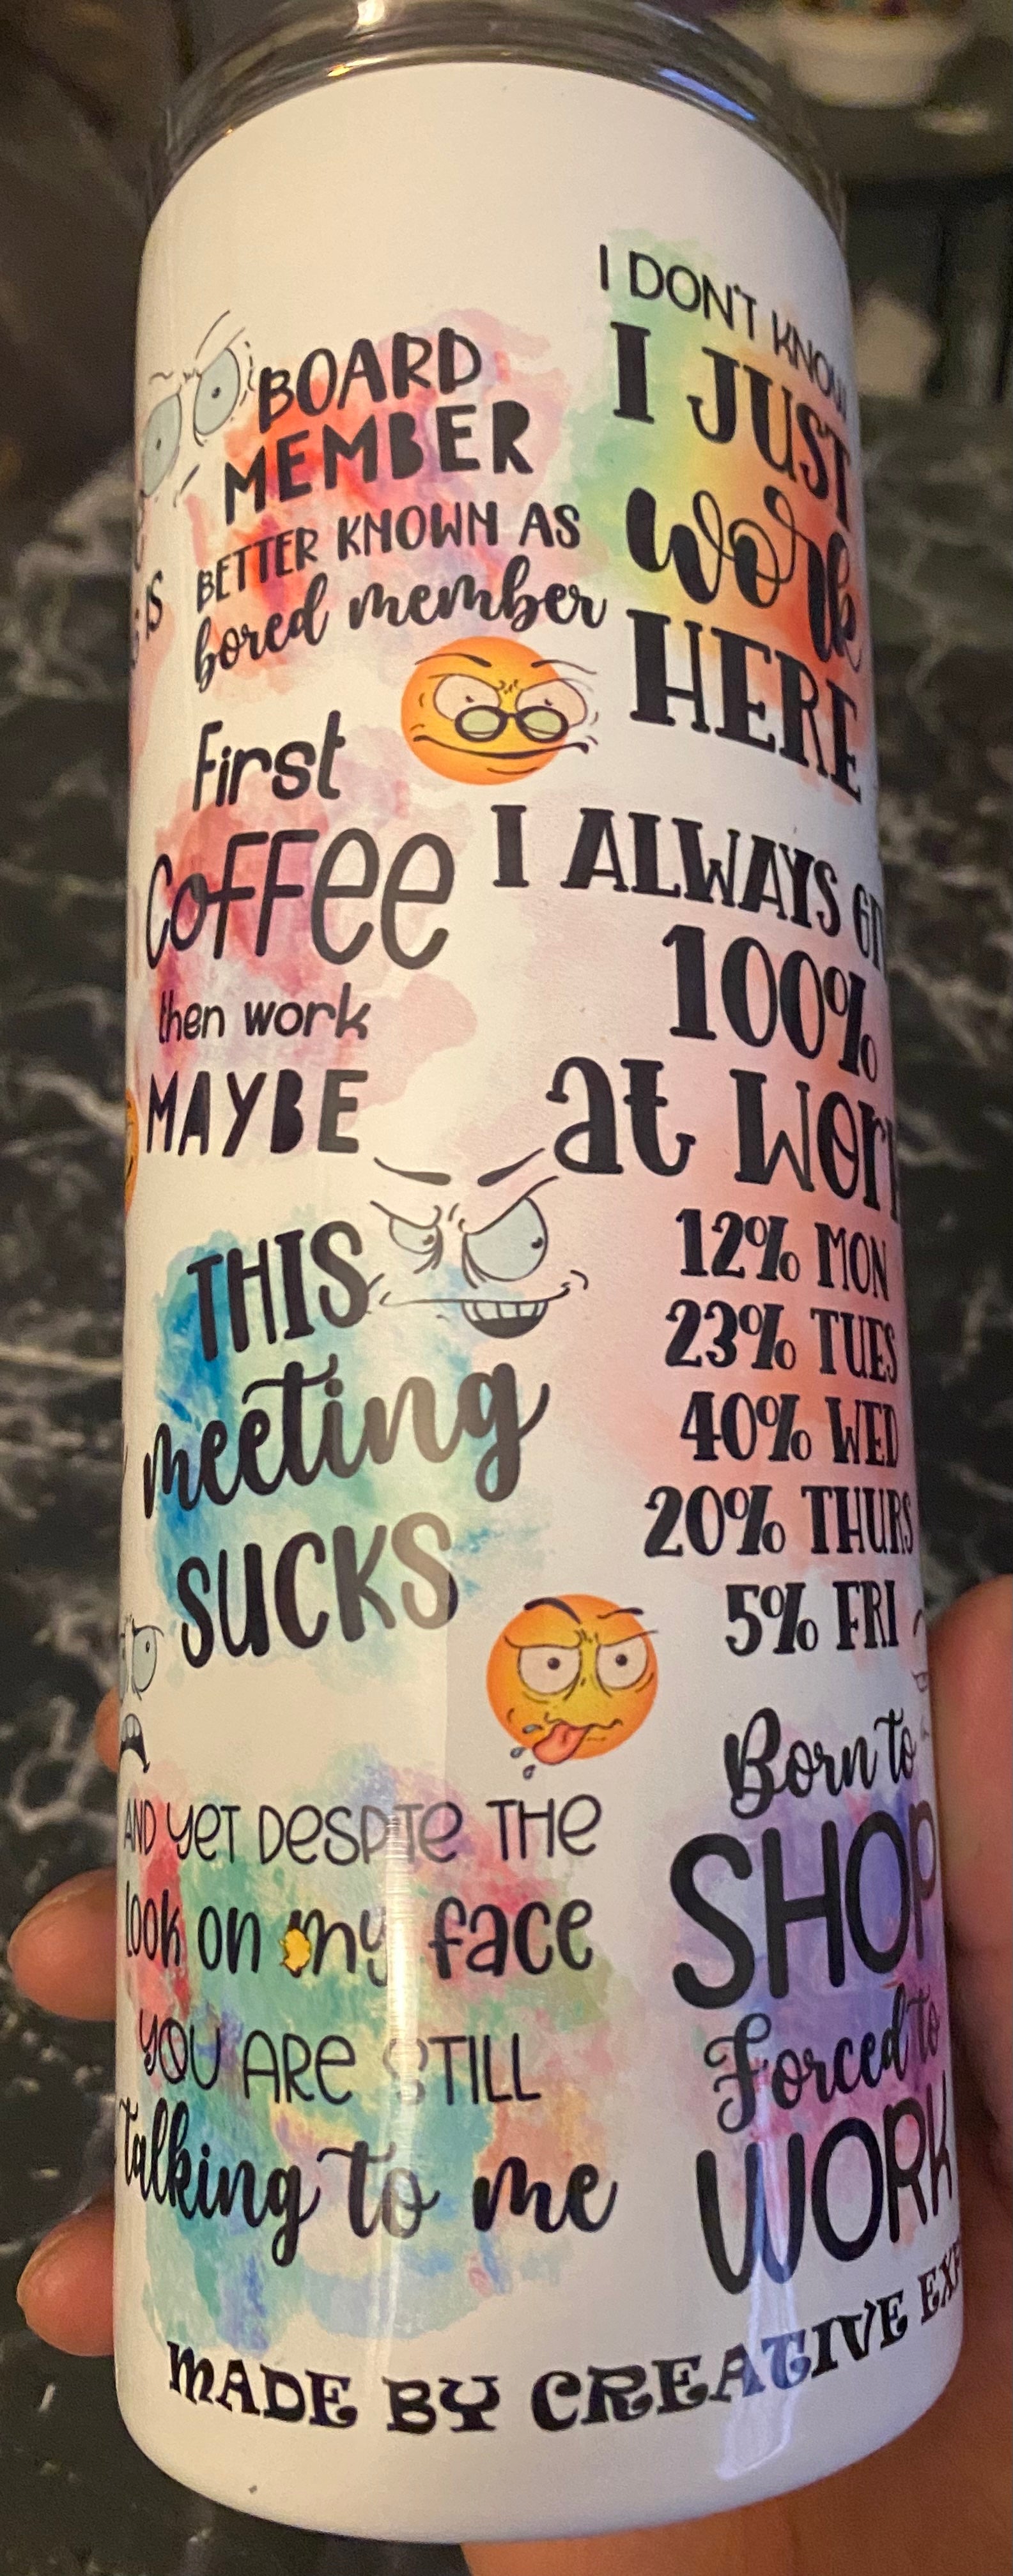 BOARD
MEMBER
BETTER KNOWN AS
bored member
First
Coffee
then work
MAYBE
THIS
meeting
SUCKS
AND YET DESPITE THE
look on my face
YOU ARE STILL
talking to me
I DON'T KNOW
I JUST
work
HERE
I ALWAYS
100%
at Work
12% MON
23% TUES
40% WED
20% THURS
5% FRI
Born to
SHOP
Forced to
WORK
IS
MADE BY CREATIVE